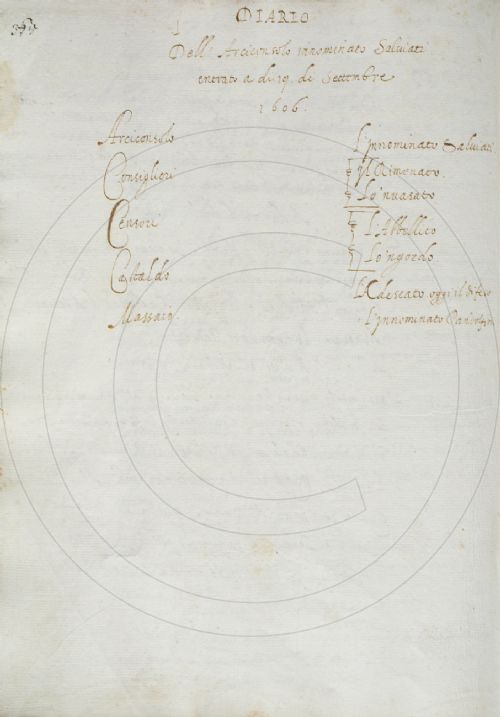 DIARIO
Dell' Arciconsolo innominato Salviati
entrato a di 19. di Settembre
1606.
Arciconsolo L'innominato Salviati
Consiglieri Il Rimenato.
Lo'nuasato
Censori
Lo'ngordo
Castaldo oggi il
Massaio. L'innominato